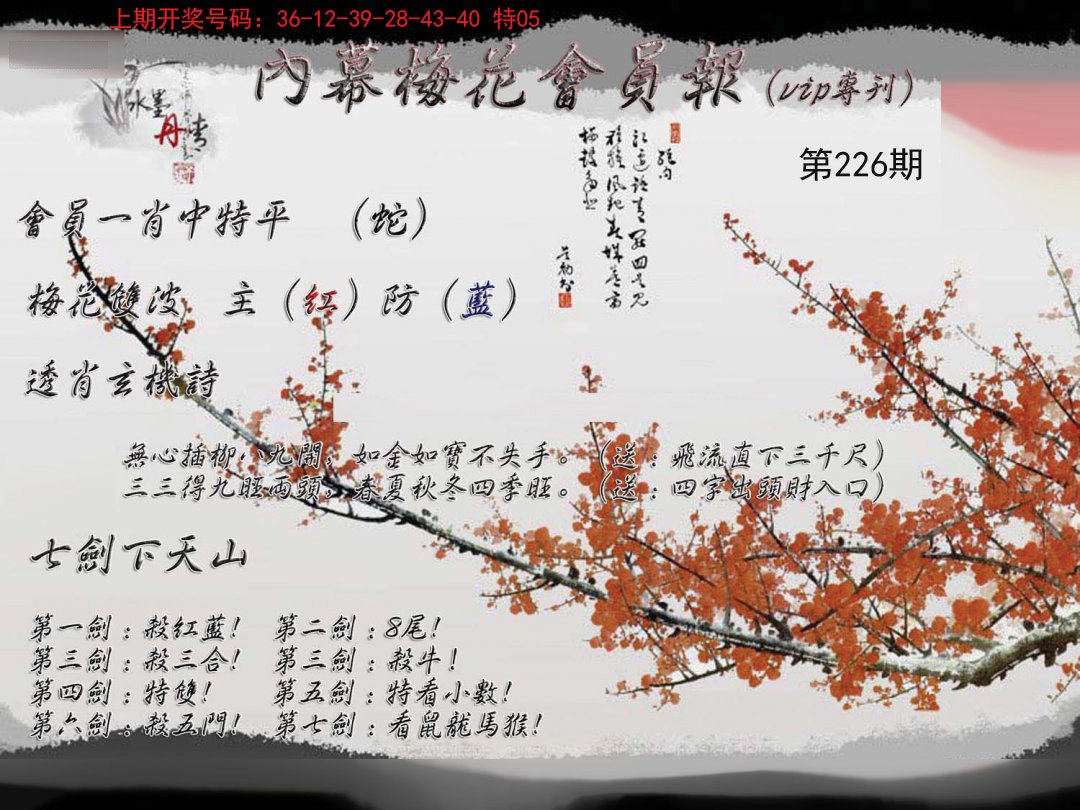 上期开奖号码：36-12-39-28-43-40 特05
內幕梅花會員報（vip專刊）
水墨
丹青
第226期
會員一肖中特平 （蛇）
梅花雙波 主（紅）防（藍）
透肖玄機詩
無心插柳八九開，如金如寶不失手。（送：飛流直下三千尺）
三三得九旺兩頭，春夏秋冬四季旺。（送：四字出頭財入口）
七劍下天山
第一劍：殺紅藍！ 第二劍：8尾！
第三劍：殺三合！ 第三劍：殺牛！
第四劍：特雙！ 第五劍：特看小數！
第六劍：殺五門！ 第七劍：看鼠龍馬猴！